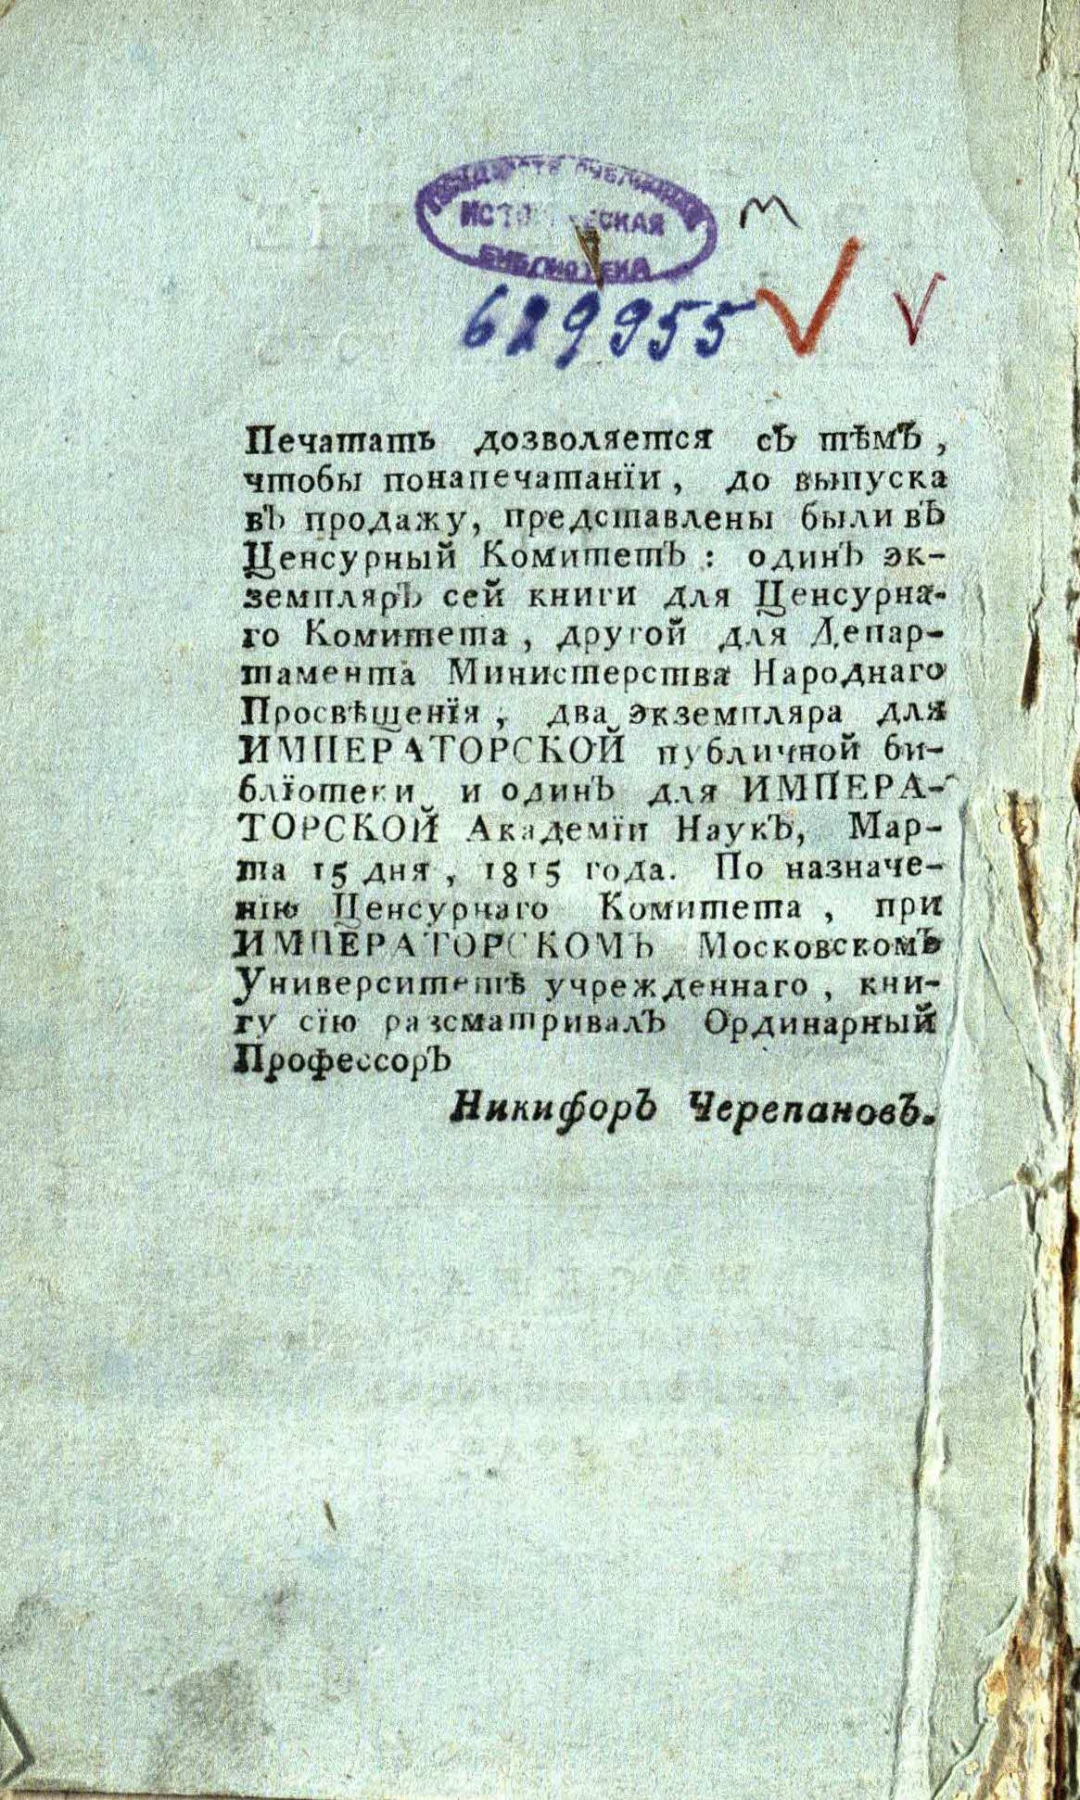 ИСТОРИЧЕСКАЯ
БИБЛИОТЕКА
629955
Печатать дозволяется съ тѣмъ,
чтобы понапечатанїи, до выпуска
въ продажу, представлены были въ
Ценсурный Комитетъ: одинъ эк-
земпляръ сей книги для Ценсурна-
го Комитета, другой для Депар-
тамента Министерства Народнаго
Просвѣщенїя, два экземпляра для
ИМПЕРАТОРСКОЙ публичной би-
блїотеки и одинъ для ИМПЕРА-
ТОРСКОЙ Академїи Наукъ, Мар-
та 15 дня, 1815 года. По назначе-
нїю Ценсурнаго Комитета, при
ИМПЕРАТОРСКОМЪ Московскомъ
Университетѣ учрежденнаго, кни-
гу сїю разсматривалъ Ординарный
Профессоръ
Никифоръ Черепановъ.